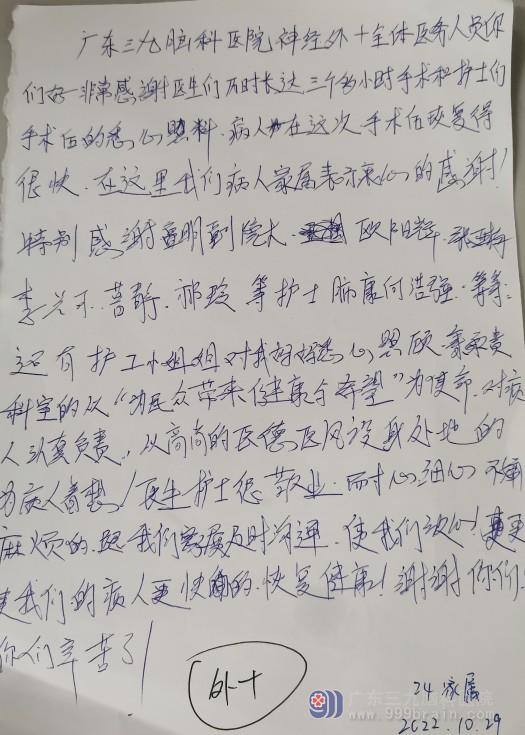 广东三九脑科医院神经外十全体医务人员你
们好!非常感谢医生们历时长达三个多小时手术和护士们
手术后的悉心照料.病人在这次手术后恢复得
很快.在这里我们病人家属表示衷心的感谢!
特别感谢 明 院长 欧阳辉.
李 等护士 等:
还有护工小姐姐对我妈妈悉心照顾. 贵
科室的以“为民众带来健康与希望”为使命.对病
人认真负责,以高尚的医德医风设身处地的
为病人着想!医生护士您敬业.耐心.细心 不嫌
麻烦的.跟我们家属及时沟通.使我们放心!更
使我们的病人更快的.恢复健康!谢谢你们!
你们辛苦了!
外十
24 家属
2022.10.29
广东三九脑科医院
www.999brain.com